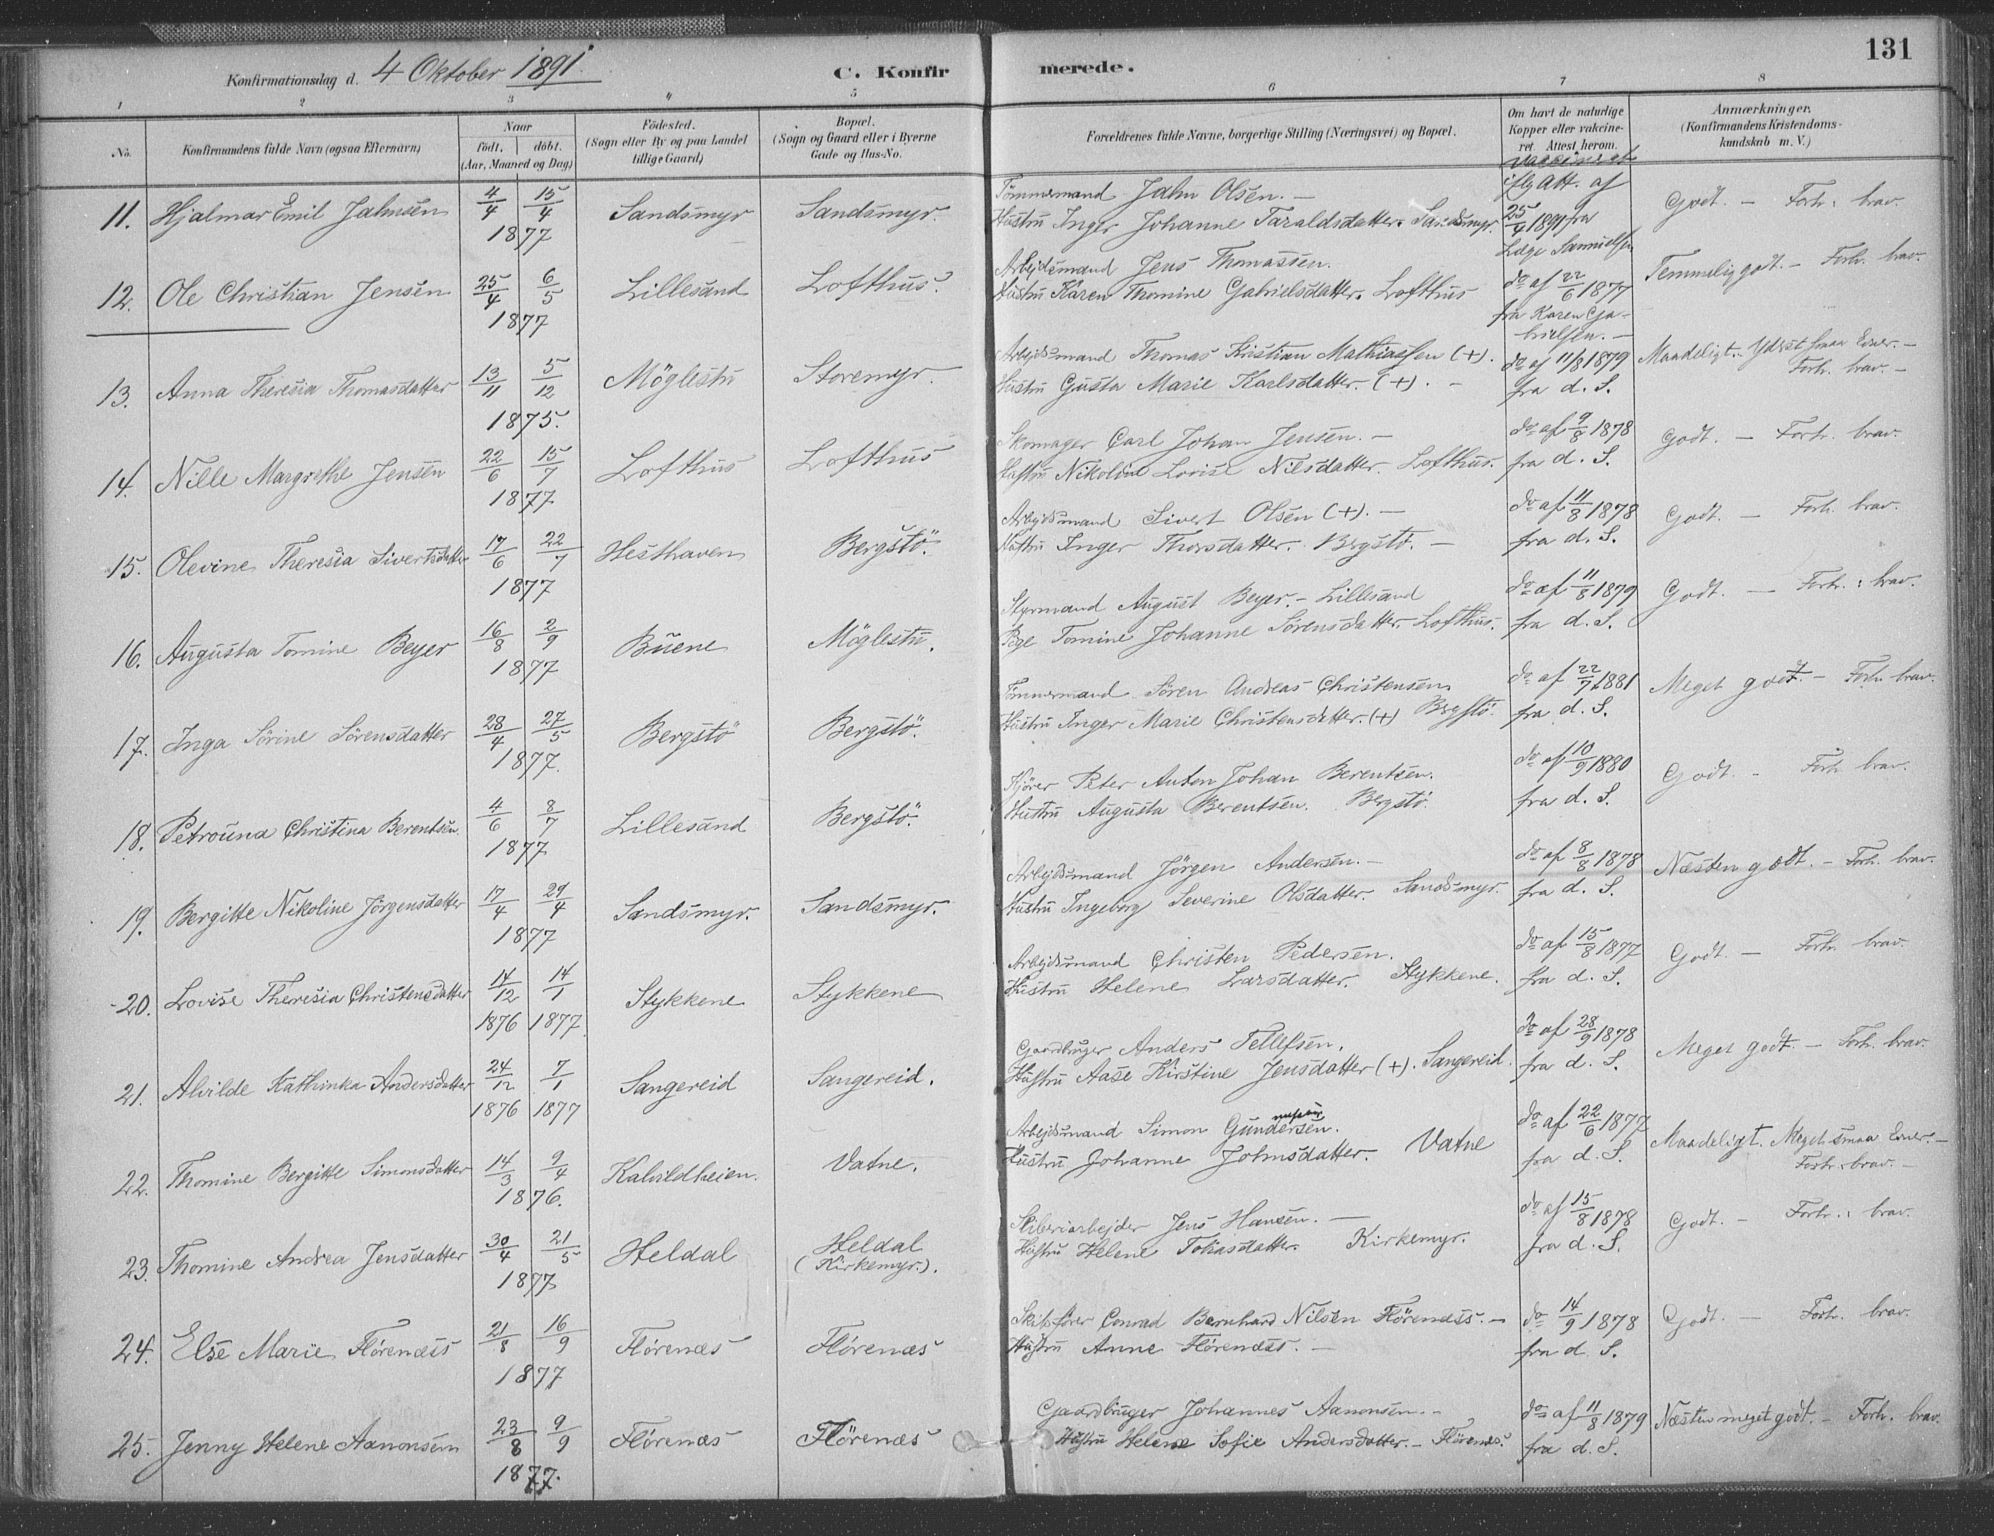 131
Konfirmationsdag d. 4 Oktober 1891. C. Konfirmerede.
1 2 3 4 5 6 7 8
No. Konfirmandens fulde Navn (ogsaa Efternavn) Naar født, døbt. (Aar, Maaned og Dag) Fødested. (Sogn eller By og paa Landet tillige Gaard) Bopæl. (Sogn og Gaard eller i Byerne Gade og Hus-No. Forældrenes fulde Navne, borgerlige Stilling (Næringsvei) og Bopæl. Om havt de naturlige Kopper eller vakcineret. Attest herom. Anmærkninger. (Konfirmandens Kristendomskundskab m. V.)
11. Hjalmar Emil Jahnsen 4/4 15/4 1877 Sandsmyr Sandsmyr. Tömmermand Jahn Olsen. —
Hustru Inger Johanne Taraldsdatter. Sandsmyr. Vakcineret iflg Att. af 25/4 1891 fra Læge Samuelsen Godt. — Forh. brav.
12. Ole Christian Jensen 25/4 6/5 1877 Lillesand Lofthus. Arbejdsmand Jens Thomassen.
Hustru Karen Thomine Gabrielsdatter. Lofthus do af 22/6 1877 fra Karen Gabrielsen. — Temmelig godt. — Forh. brav.
13. Anna Theresia Thomasdatter 13/11 5/12 1875. Möglestu Storemyr. Arbejdsmand Thomas Kristian Mathiassen (+).
Hustru Gusta Marie Karlsdatter. (+). — do af 11/8 1879 fra d. S. Maadeligt. Yderst smaa Evner. —
Forh. brav. —
14. Nille Margrethe Jensen 22/6 15/7 1877. Lofthus Lofthus Skomager Carl Johan Jensen. —
Hustru Nikoline Lovise Nilsdatter. Lofthus. do af 9/8 1878 fra d. S. Godt. — Forh. brav.
15. Olevine Theresia Sivertsdatter 17/6 22/7 1877 Hesthaven Bergstö. Arbejdsmand Sivert Olsen (+). —
Hustru Inger Thorsdatter. Bergstö. — do af 11/8 1878 fra d. S. Godt. — Forh. brav.
16. Augusta Tomine Beyer 16/8 2/9 1877 Buene Möglestu. Styrmand August Beyer. — Lillesand
Pige Tomine Johanne Sörensdatter. Lofthus. do af 11/8 1879 fra d. S. Godt. — Forh. brav.
17. Inga Sörine Sörensdatter 28/4 27/5 1877. Bergstö Bergstö. Tömmermand Sören Andreas Christensen
Hustru Inger Marie Christensdatter. (+) Bergstö. do af 22/7 1881 fra d. S. Meget godt. — Forh. brav.
18. Petrouna Christina Berentsen 4/6 8/7 1877 Lillesand Bergstö. Kjörer Peter Anton Johan Berentsen.
Hustru Augusta Berentsen. Bergstö. do af 10/9 1880 fra d. S. Godt. — Forh. brav.
19. Bergitte Nikoline Jörgensdatter 17/4 29/4 1877 Sandsmyr. Sandsmyr. Arbejdsmand Jörgen Andersen. —
Hustru Ingeborg Severine Olsdatter. Sandsmyr. do af 8/8 1878 fra d. S. Næsten godt. — Forh. brav.
20. Lovise Theresia Christensdatter 14/12 1876 14/1 1877 Stykkene Stykkene Arbejdsmand Christen Pedersen.
Hustru Helene Larsdatter. Stykkene. do af 15/8 1877 fra d. S. Godt. — Forh. brav.
21. Alvilde Kathinka Andersdatter 24/12 1876 7/1 1877 Sangereid Sangereid. Gaardbruger Anders Tellefsen.
Hustru Aase Kirstine Jensdatter (+). Sangereid. do af 28/9 1878 fra d. S. Meget godt. — Forh. brav.
22. Thomine Bergitte Simonsdatter 14/3 9/4 1876. Kalvildheien. Vatne. Arbejdsmand Simon Gundersen.
Hustru Johanne Johnsdatter. Vatne do af 22/6 1877 fra d. S. Maadeligt. Meget smaa Evner. —
Forh. brav. —
23. Thomine Andrea Jensdatter 30/4 21/5 1877 Heldal Heldal (Kirkemyr.). Sliberiarbejder Jens Hansen. —
Hustru Helene Tobiasdatter. Kirkemyr. do af 15/8 1878 fra d. S. Godt. — Forh. brav.
24. Else Marie Flörenæs 21/8 16/9 1877 Flörenæs Flörenæs Skibsförer Conrad Bernhard Nilsen Flörenæs. —
Hustru Anne Flörenæs. — do 14/9 1878 fra d. S. Godt. — Forh. brav.
25. Jenny Helene Aanonsen 23/8 9/9 1877. Flörenæs Flörenæs Gaardbruger Johannes Aanonsen. —
Hustru Helene Sofie Andersdatter. — Flörenæs. do af 11/8 1879 fra d. S. Næsten meget godt. — Forh. brav.